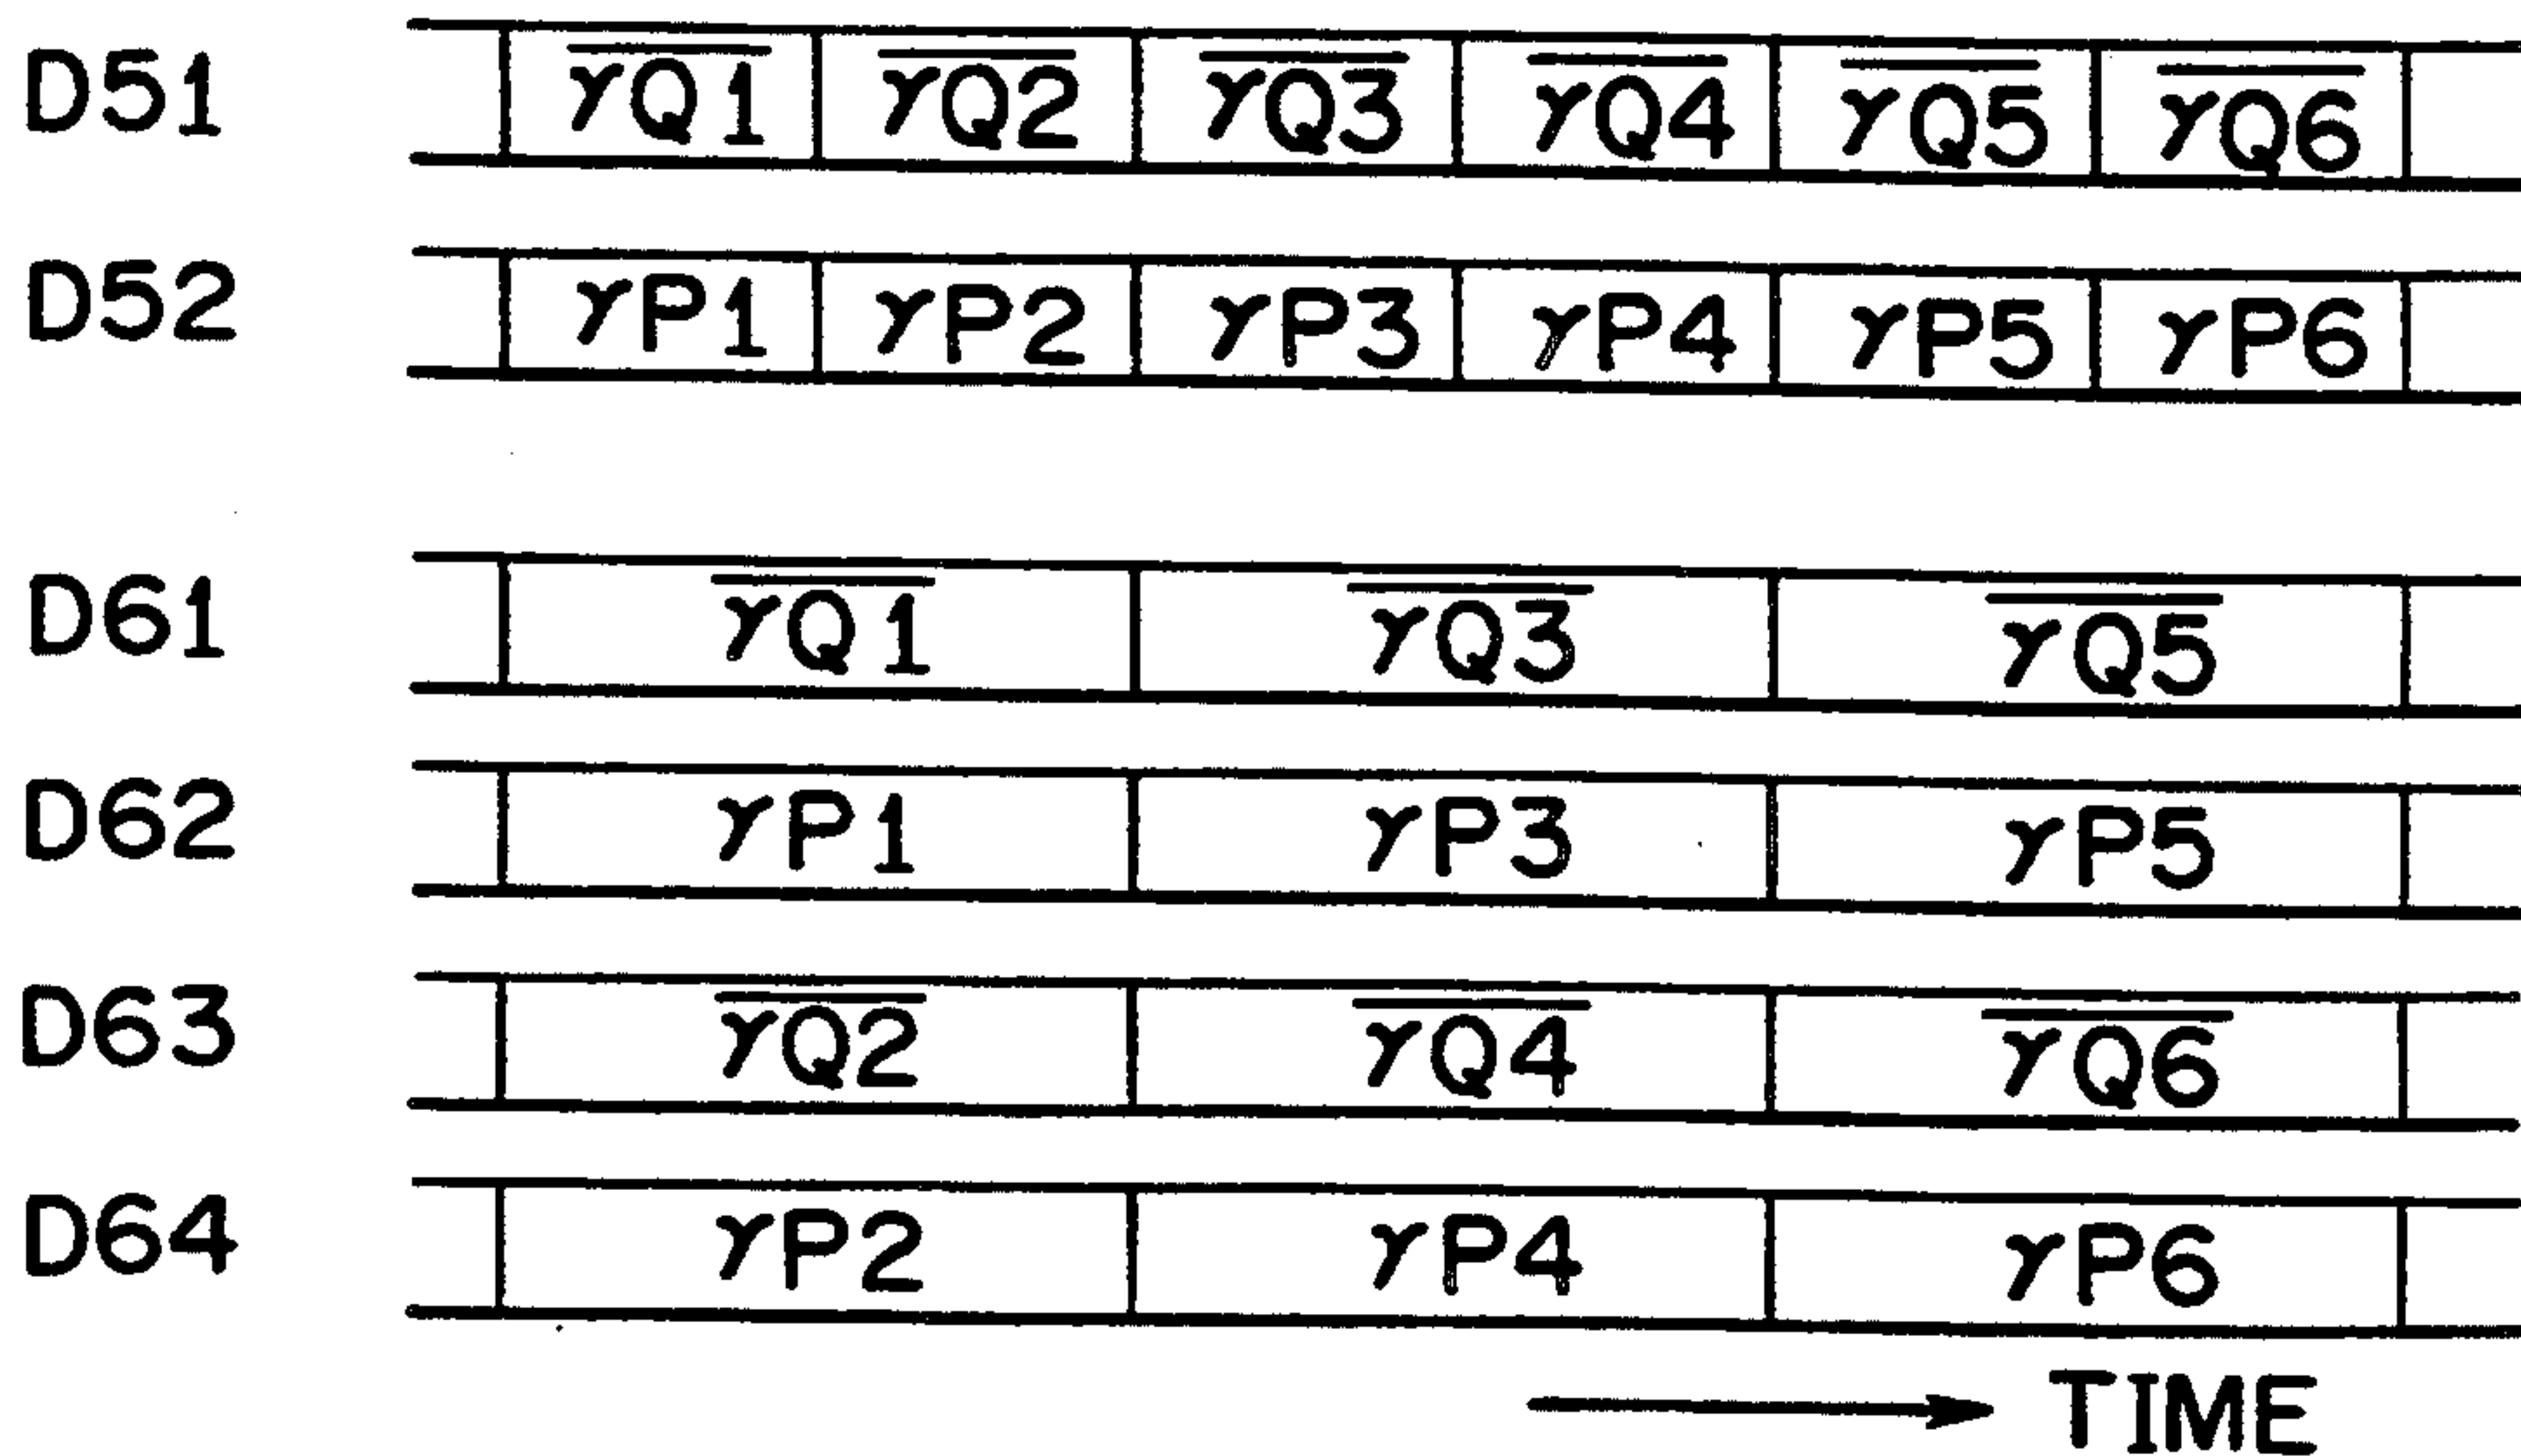 D51 γQ̅1̅ γQ̅2̅ γQ̅3̅ γQ̅4̅ γQ̅5̅ γQ̅6̅
D52 γP1 γP2 γP3 γP4 γP5 γP6
D61 γQ̅1̅ γQ̅3̅ γQ̅5̅
D62 γP1 γP3 γP5
D63 γQ̅2̅ γQ̅4̅ γQ̅6̅
D64 γP2 γP4 γP6
TIME